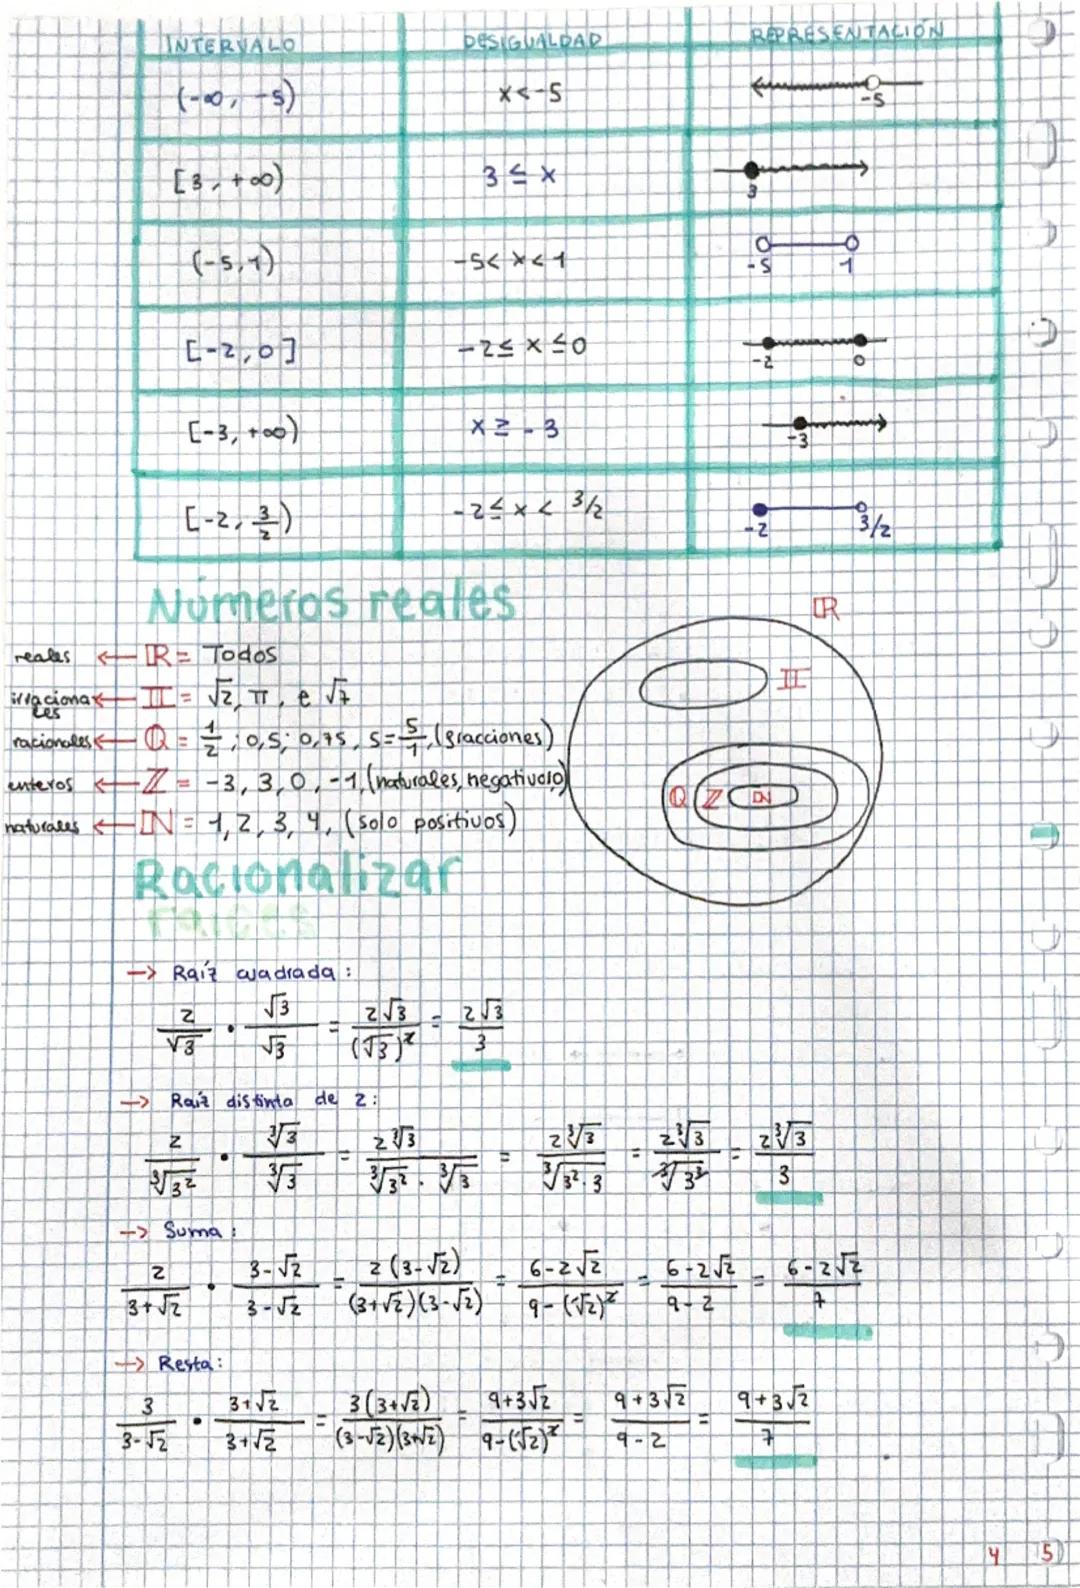 INTERVALO DESIGUALDAD REPRESENTACIÓN
(-∞, -5) x<-5 -5
[3, +∞) 3 ≤ x 3
(-5,1) -5< x< 1 -5 1
[-2,0] -2≤ x ≤0 -2 0
[-3, +∞) x ≥ -3 -3
[-2, 3/2) -2≤ x < 3/2 -2 3/2
Números reales
reales ← ℝ = Todos
irracionales ← 𝕀 = √2, π, e √7
racionales ← ℚ = 1/2; 0,5; 0,75, 5=5/1, (fracciones)
enteros ← ℤ = -3, 3, 0, -1, (naturales, negativos, 0)
naturales ← ℕ = 1, 2, 3, 4, (solo positivos)
ℝ
𝕀
ℚ ℤ ℕ
Racionalizar
raíces
→ Raíz cuadrada:
2/√3 · √3/√3 = 2√3/(√3)² = 2√3/3
→ Raíz distinta de 2:
2/∛3² · ∛3/∛3 = 2∛3/∛3² · ∛3 = 2∛3/∛3²·3 = 2∛3/∛3³ = 2∛3/3
→ Suma:
2/3+√2 · 3-√2/3-√2 = 2(3-√2)/(3+√2)(3-√2) = 6-2√2/9-(√2)² = 6-2√2/9-2 = 6-2√2/7
→ Resta:
3/3-√2 · 3+√2/3+√2 = 3(3+√2)/(3-√2)(3+√2) = 9+3√2/9-(√2)² = 9+3√2/9-2 = 9+3√2/7
4 5